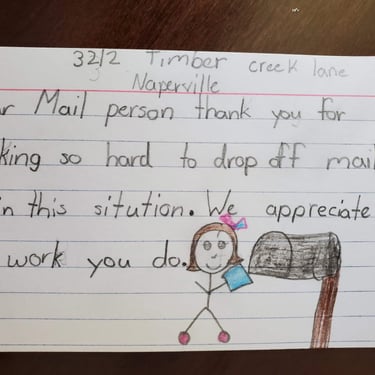 3212 Timber creek lane
Naperville
r Mail person thank you for
king so hard to drop off mail
in this sitution. We appreciate
work you do.